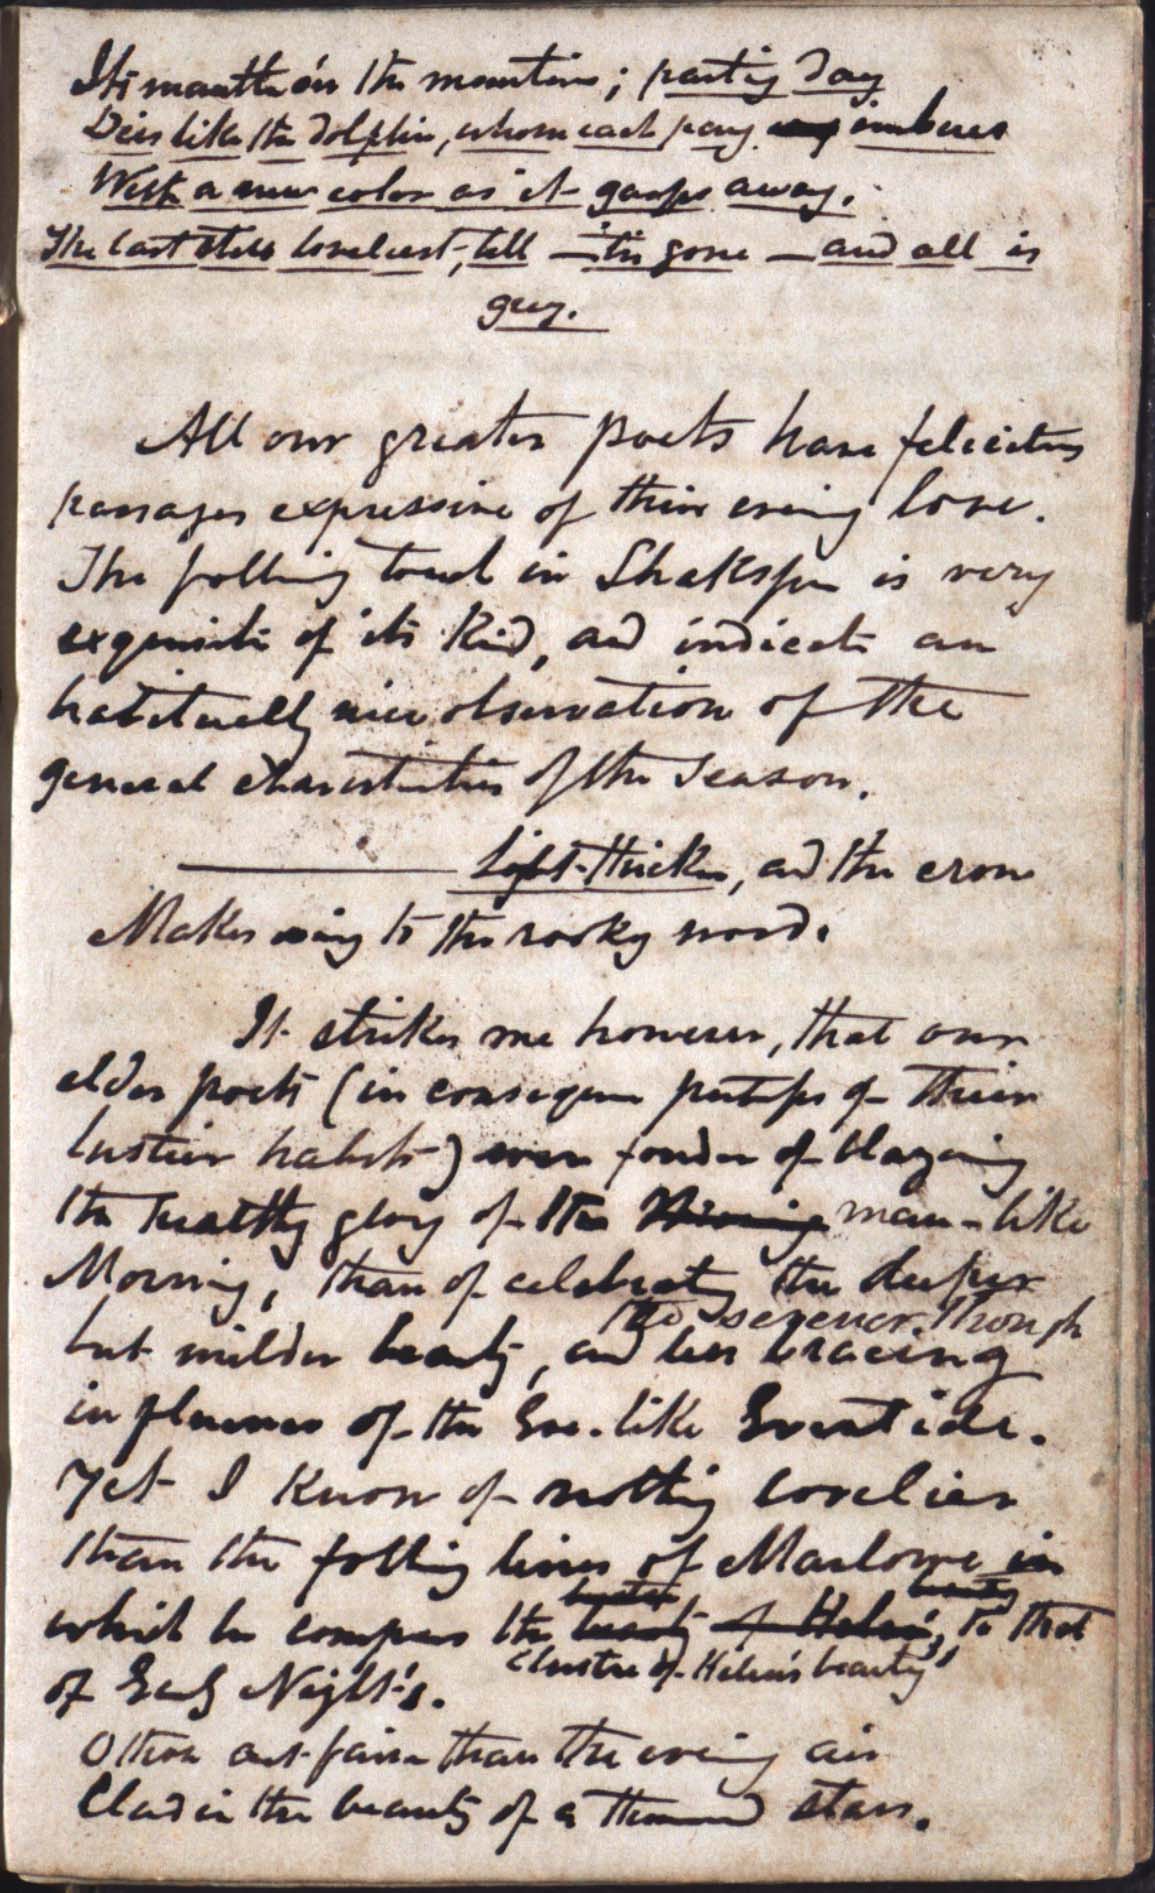 Its mantle o'er the mountains; parting day
Dies like the dolphin, whom each pang imbues
With a new color as it gasps away.
The last still loveliest, till — 'tis gone — and all is
grey.
All our greater poets have felicitous
passages expressive of their evening love.
The following touch in Shakspere is very
exquisite of its kind, and indicates an
habitually nice observation of the
general characteristics of the season.
——— Light thickens, and the crow
Makes wing to the rooky wood.
It strikes me however, that our
elder poets (in consequence perhaps of their
lustier habits) were fonder of blazoning
the healthy glory of the Morning man-like
Morning, than of celebrating the deeper
the serener though
but milder beauty, and less bracing
influences of the Eve-like Eventide.
Yet I know of nothing lovelier
than the following lines of Marlowe in
which he compares the beauty of Helen's beauty, to that
lustre of Helen's beauty
of Early Night's.
O thou art fairer than the evening air
Clad in the beauty of a thousand stars.